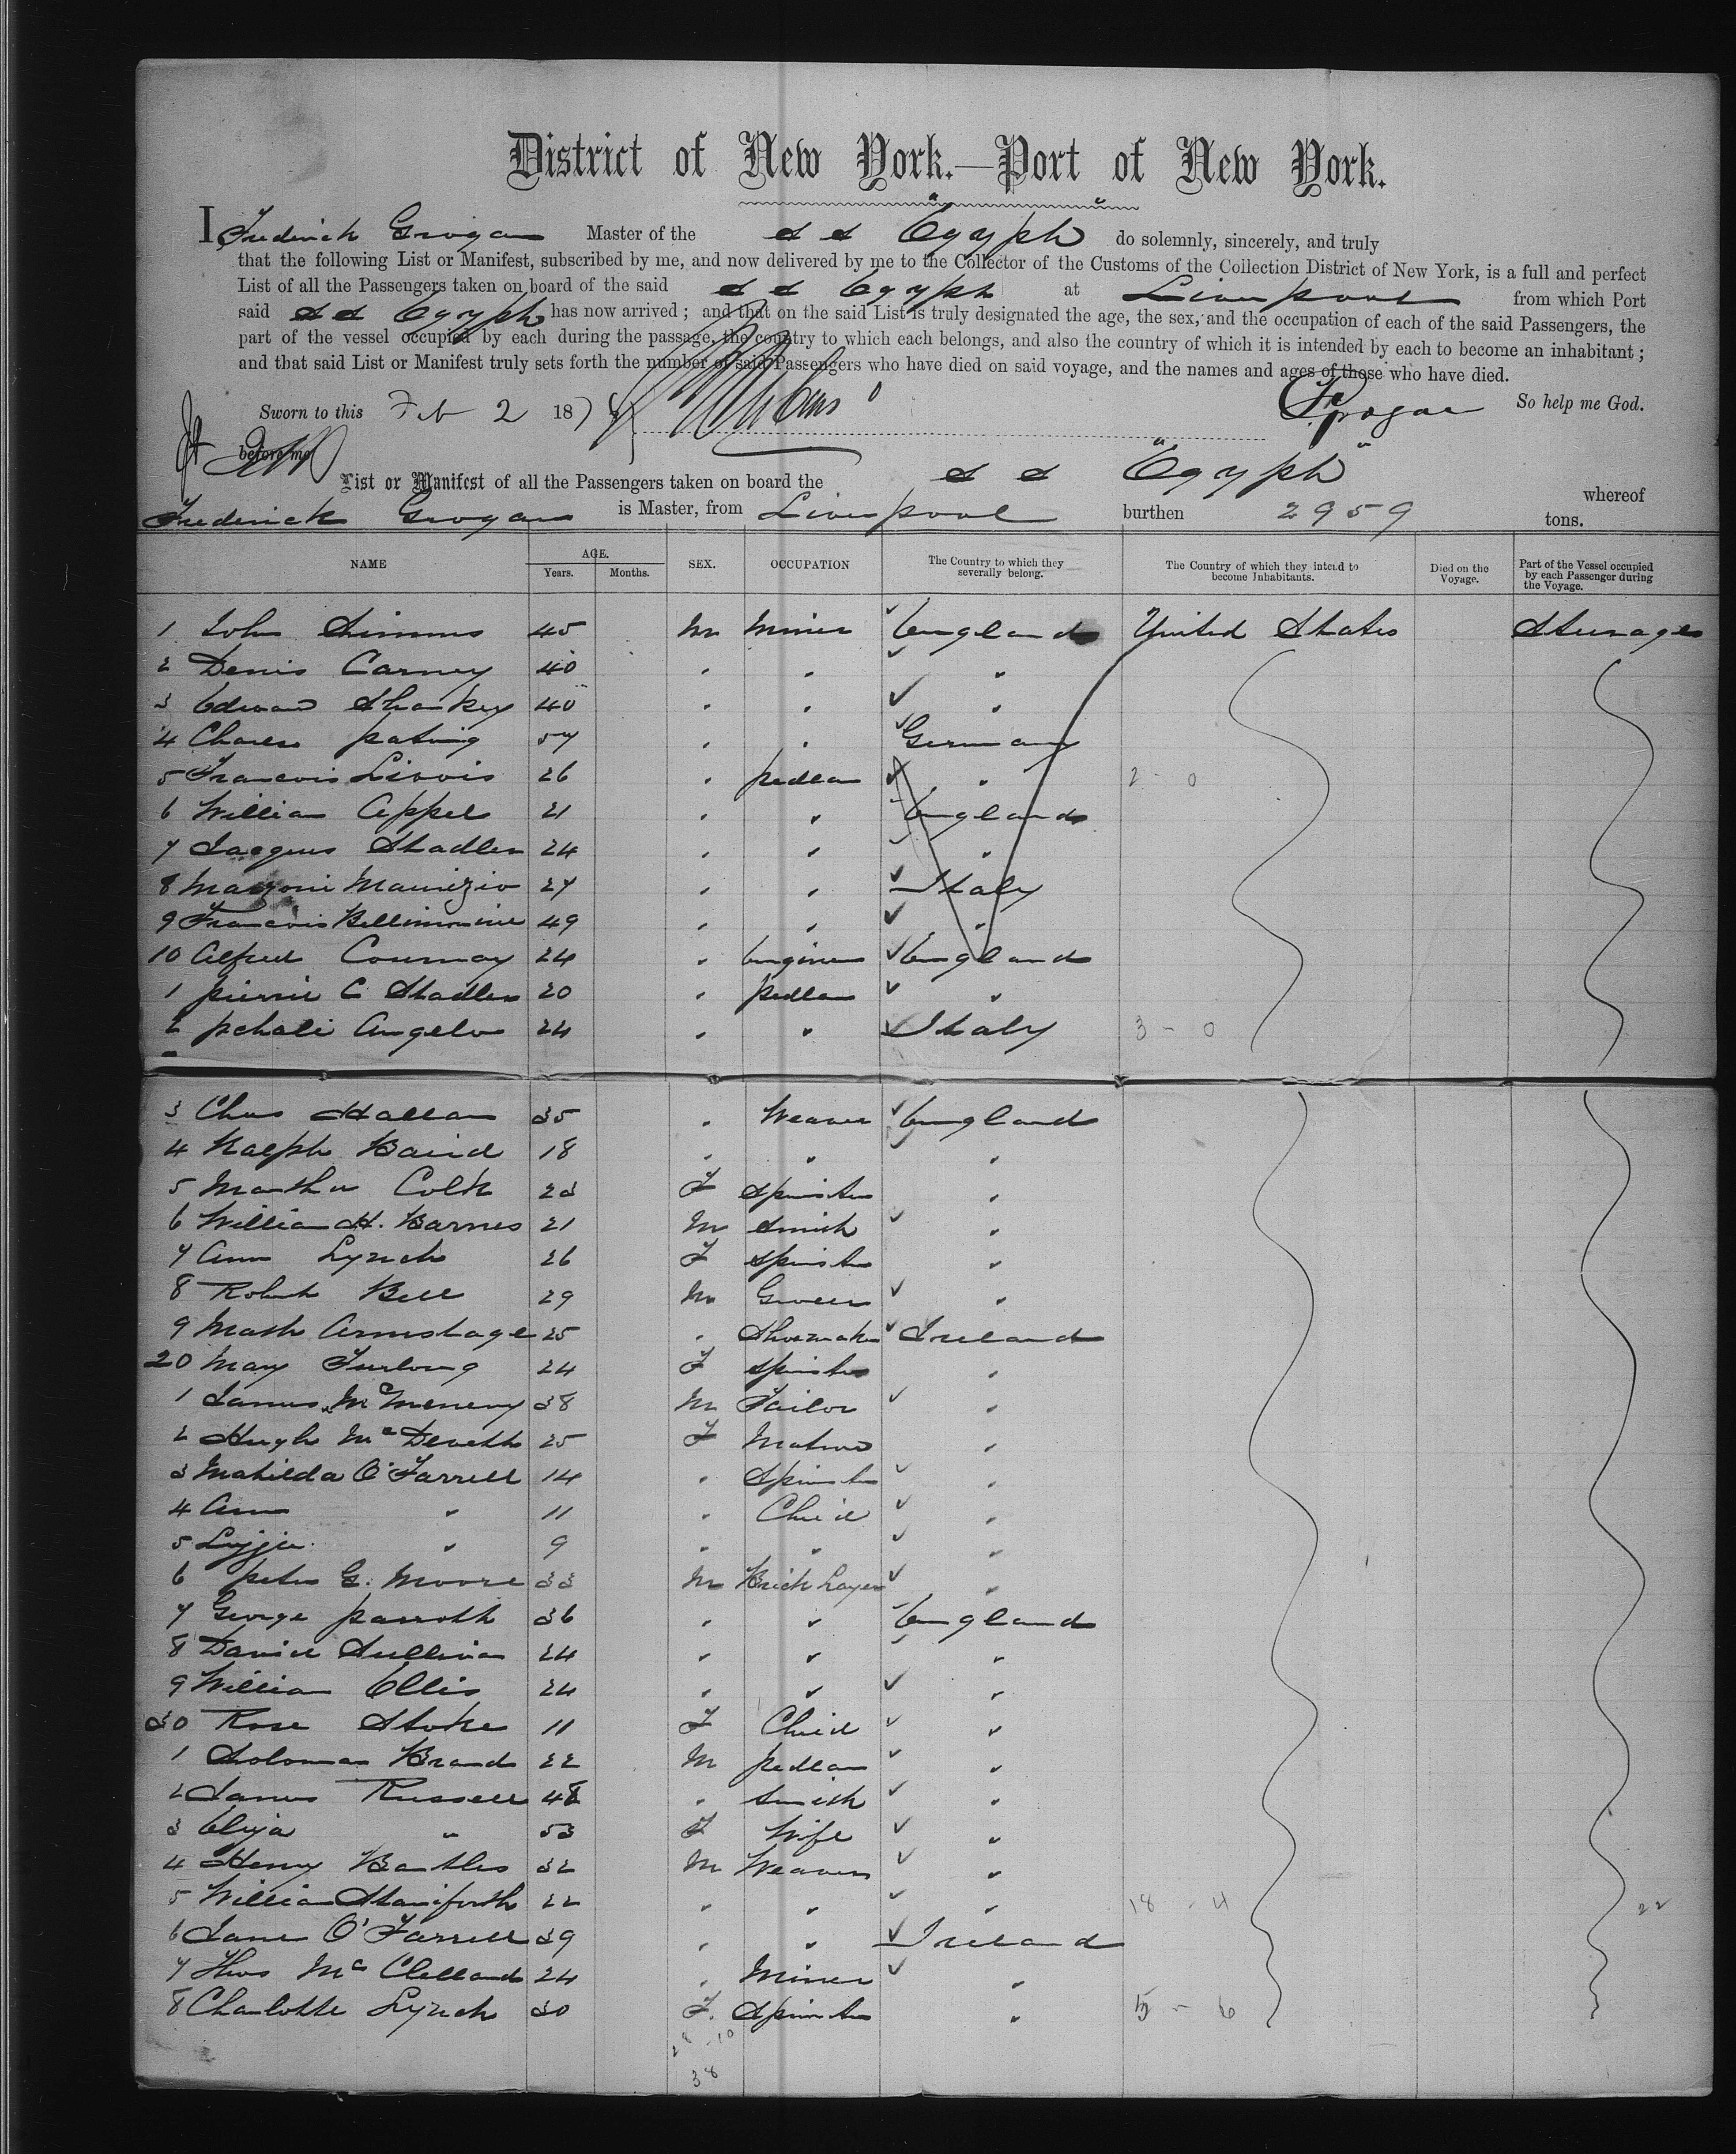 District of New York.—Port of New York.
I Frederick Grogan Master of the S S "Egypt" do solemnly, sincerely, and truly
that the following List or Manifest, subscribed by me, and now delivered by me to the Collector of the Customs of the Collection District of New York, is a full and perfect
List of all the Passengers taken on board of the said S S Egypt at Liverpool from which Port
said S S Egypt has now arrived; and that on the said List is truly designated the age, the sex, and the occupation of each of the said Passengers, the
part of the vessel occupied by each during the passage, the country to which each belongs, and also the country of which it is intended by each to become an inhabitant;
and that said List or Manifest truly sets forth the number of said Passengers who have died on said voyage, and the names and ages of those who have died.
Sworn to this Feb 2 187 F Grogan So help me God.
before me
List or Manifest of all the Passengers taken on board the S S "Egypt" whereof
Frederick Grogan is Master, from Liverpool burthen 2959 tons.
NAME AGE. Years. Months. SEX. OCCUPATION The Country to which they severally belong. The Country of which they intend to become Inhabitants. Died on the Voyage. Part of the Vessel occupied by each Passenger during the Voyage.
1 John Simms 45 M Miner England United States Steerage
2 Denis Carney 40 " " "
3 Edward Sharkey 40 " " "
4 Charles 57 " " Germany
5 Francois Liovis 26 " pedlar " 2 - 0
6 William Appel 21 " " England
7 Jacques Stadler 24 " " "
8 Mazoni Maurizio 27 " " Italy
9 Francois 49 " " "
10 Alfred Cournay 24 " Engineer England
1 pierrie C Stadler 20 " pedlar "
2 pchali Angelo 24 " " Italy 3 - 0
3 Chas Hallam 35 " Weaver England
4 Ralph Baird 18 " " "
5 Martha Colk 23 F Spinster "
6 William H. Barnes 21 M Smith "
7 Ann Lynch 26 F Spinster "
8 Robert Bell 29 M Grocer "
9 Math Armstage 25 " Shoemaker Ireland
20 Mary Furlong 24 F Spinster "
1 James McMeneny 38 M Tailor "
2 Hugh McDevett 25 F Matron "
3 Mathilda O'Farrell 14 " Spinster "
4 Ann " 11 " Child "
5 Lizzie " 9 " " "
6 peter G. Moore 33 M Brick Layer "
7 George parrott 36 " " England
8 Daniel Sullivan 24 " " "
9 William Ellis 24 " " "
30 Rose Stoke 11 F Child "
1 Soloman Brand 22 M pedlar "
2 James Russell 48 " Smith "
3 Eliza " 53 F Wife "
4 Henry Bartles 32 M Weaver "
5 William Staniforth 22 " " " 18 - 4 22
6 Jane O'Farrell 39 " " Ireland
7 Thos McClelland 24 " Miner "
8 Charlotte Lynch 30 F. Spinster " 5 - 6
28 - 10
38